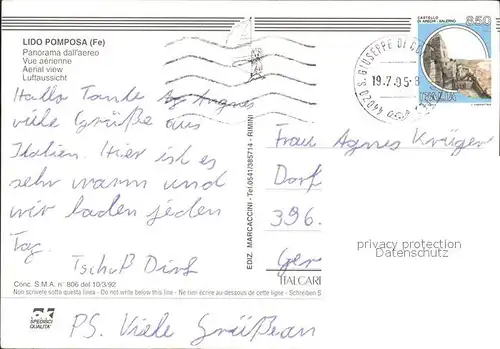 LIDO POMPOSA (Fe)
Panorama dall'aereo
Vue aérienne
Aerial view
Luftaussicht
Hallo Tante Agnes
viele Grüße aus
Italien. Hier ist es
sehr warm und
wir baden jeden
Tag.
Tschüß Dirk
Conc. S.M.A. n° 806 del 10/3/92
Non scrivere sotto questa linea - Do not write below this line - Nier rien écrire au-dessous de cette ligne - Schreiben S
SPEDISCI
QUALITA'
PS. Viele Grüße an
EDIZ. MARCACCINI - Tel 0541/385714 - RIMINI
ITALCARI
CASTELLO
DI ARECHI - SALERNO
850
ITALIA
S. GIUSEPPE DI
19.7.95-8
44020
Frau Agnes Krüger
Dorf
396.
Ger
privacy protection
Datenschutz